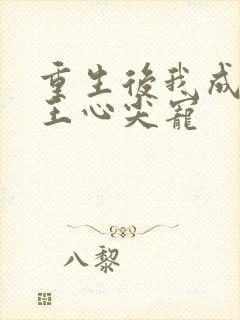 重生後我成
王心尖寵
八黎